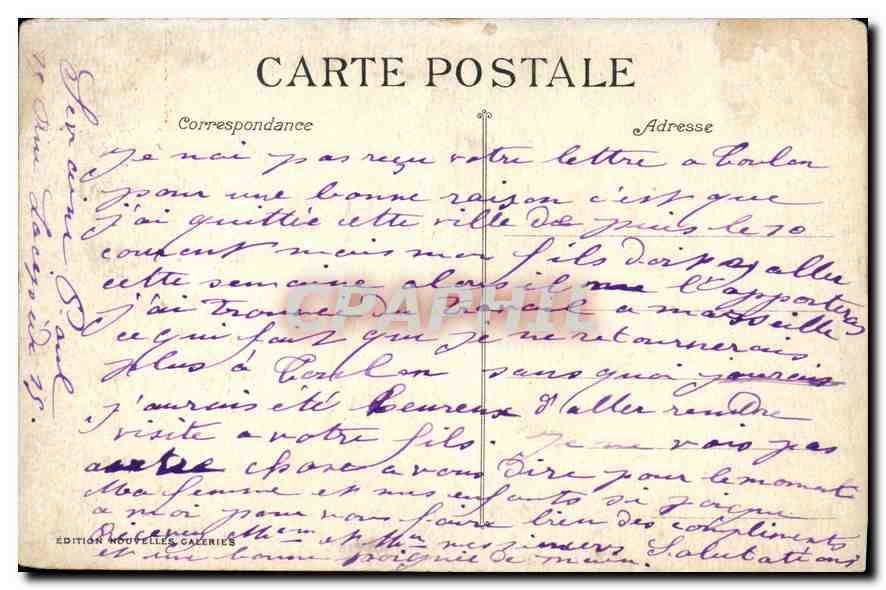 CARTE POSTALE
Correspondance
Adresse
je nai pas reçu votre lettre a Toulon
pour une bonne raison c'est que
j'ai quittée cette ville de puis le 10
courant mais mon fils doit y aller
cette semaine alors il l'apporteras
j'ai trouvé du travail a marseille
ce qui fait que je ne retournerais
plus à Toulon sans quoi jaurais
j'aurais été heureux d'aller rendre
visite a votre fils. Je ne vois pas
autre chose a vous dire pour le moment
Ma femme et mes enfants se joigne
a moi pour vous faire bien des compliments
Recevez et mes Salutations
et une bonne poignée de main.
Paul
75 Rue 75.
EDITION NOUVELLES GALERIES
CPAPHIL